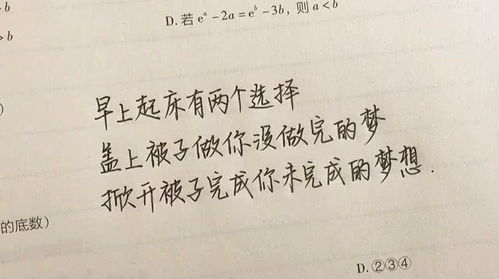 > b
D. 若 eᵃ − 2a = eᵇ − 3b，则 a < b
> b
)
早上起床有两个选择
盖上被子做你没做完的梦
掀开被子完成你未完成的梦想.
的底数）
D. ②③④